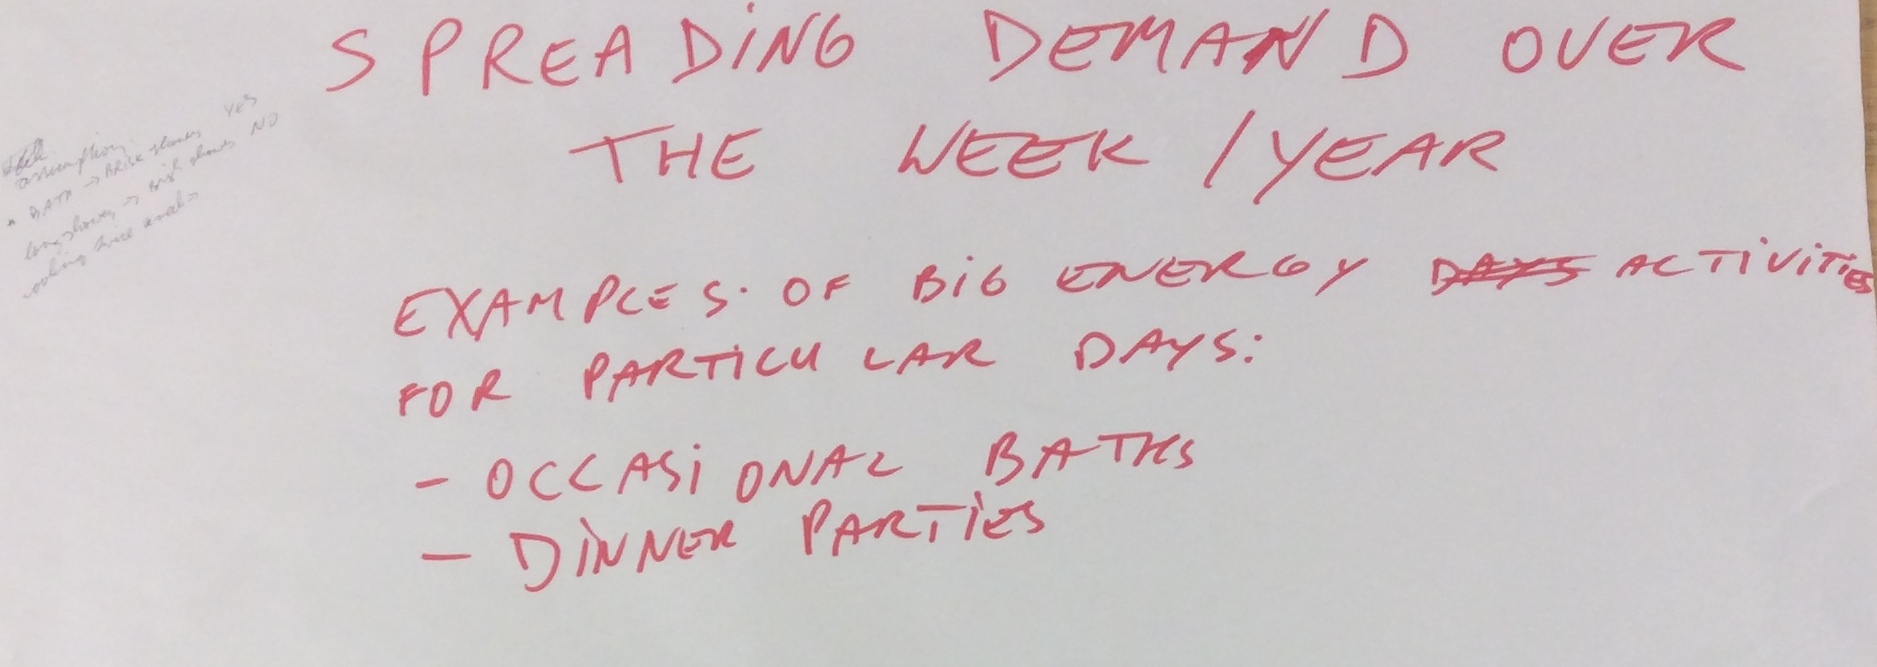 SPREADING DEMAND OVER
THE WEEK / YEAR
EXAMPLES. OF BIG ENERGY DAYS ACTIVITIES
FOR PARTICULAR DAYS:
- OCCASIONAL BATHS
- DINNER PARTIES
assumption
• BATH → BRISK showers YES
long showers → brisk showers NO
twice a week